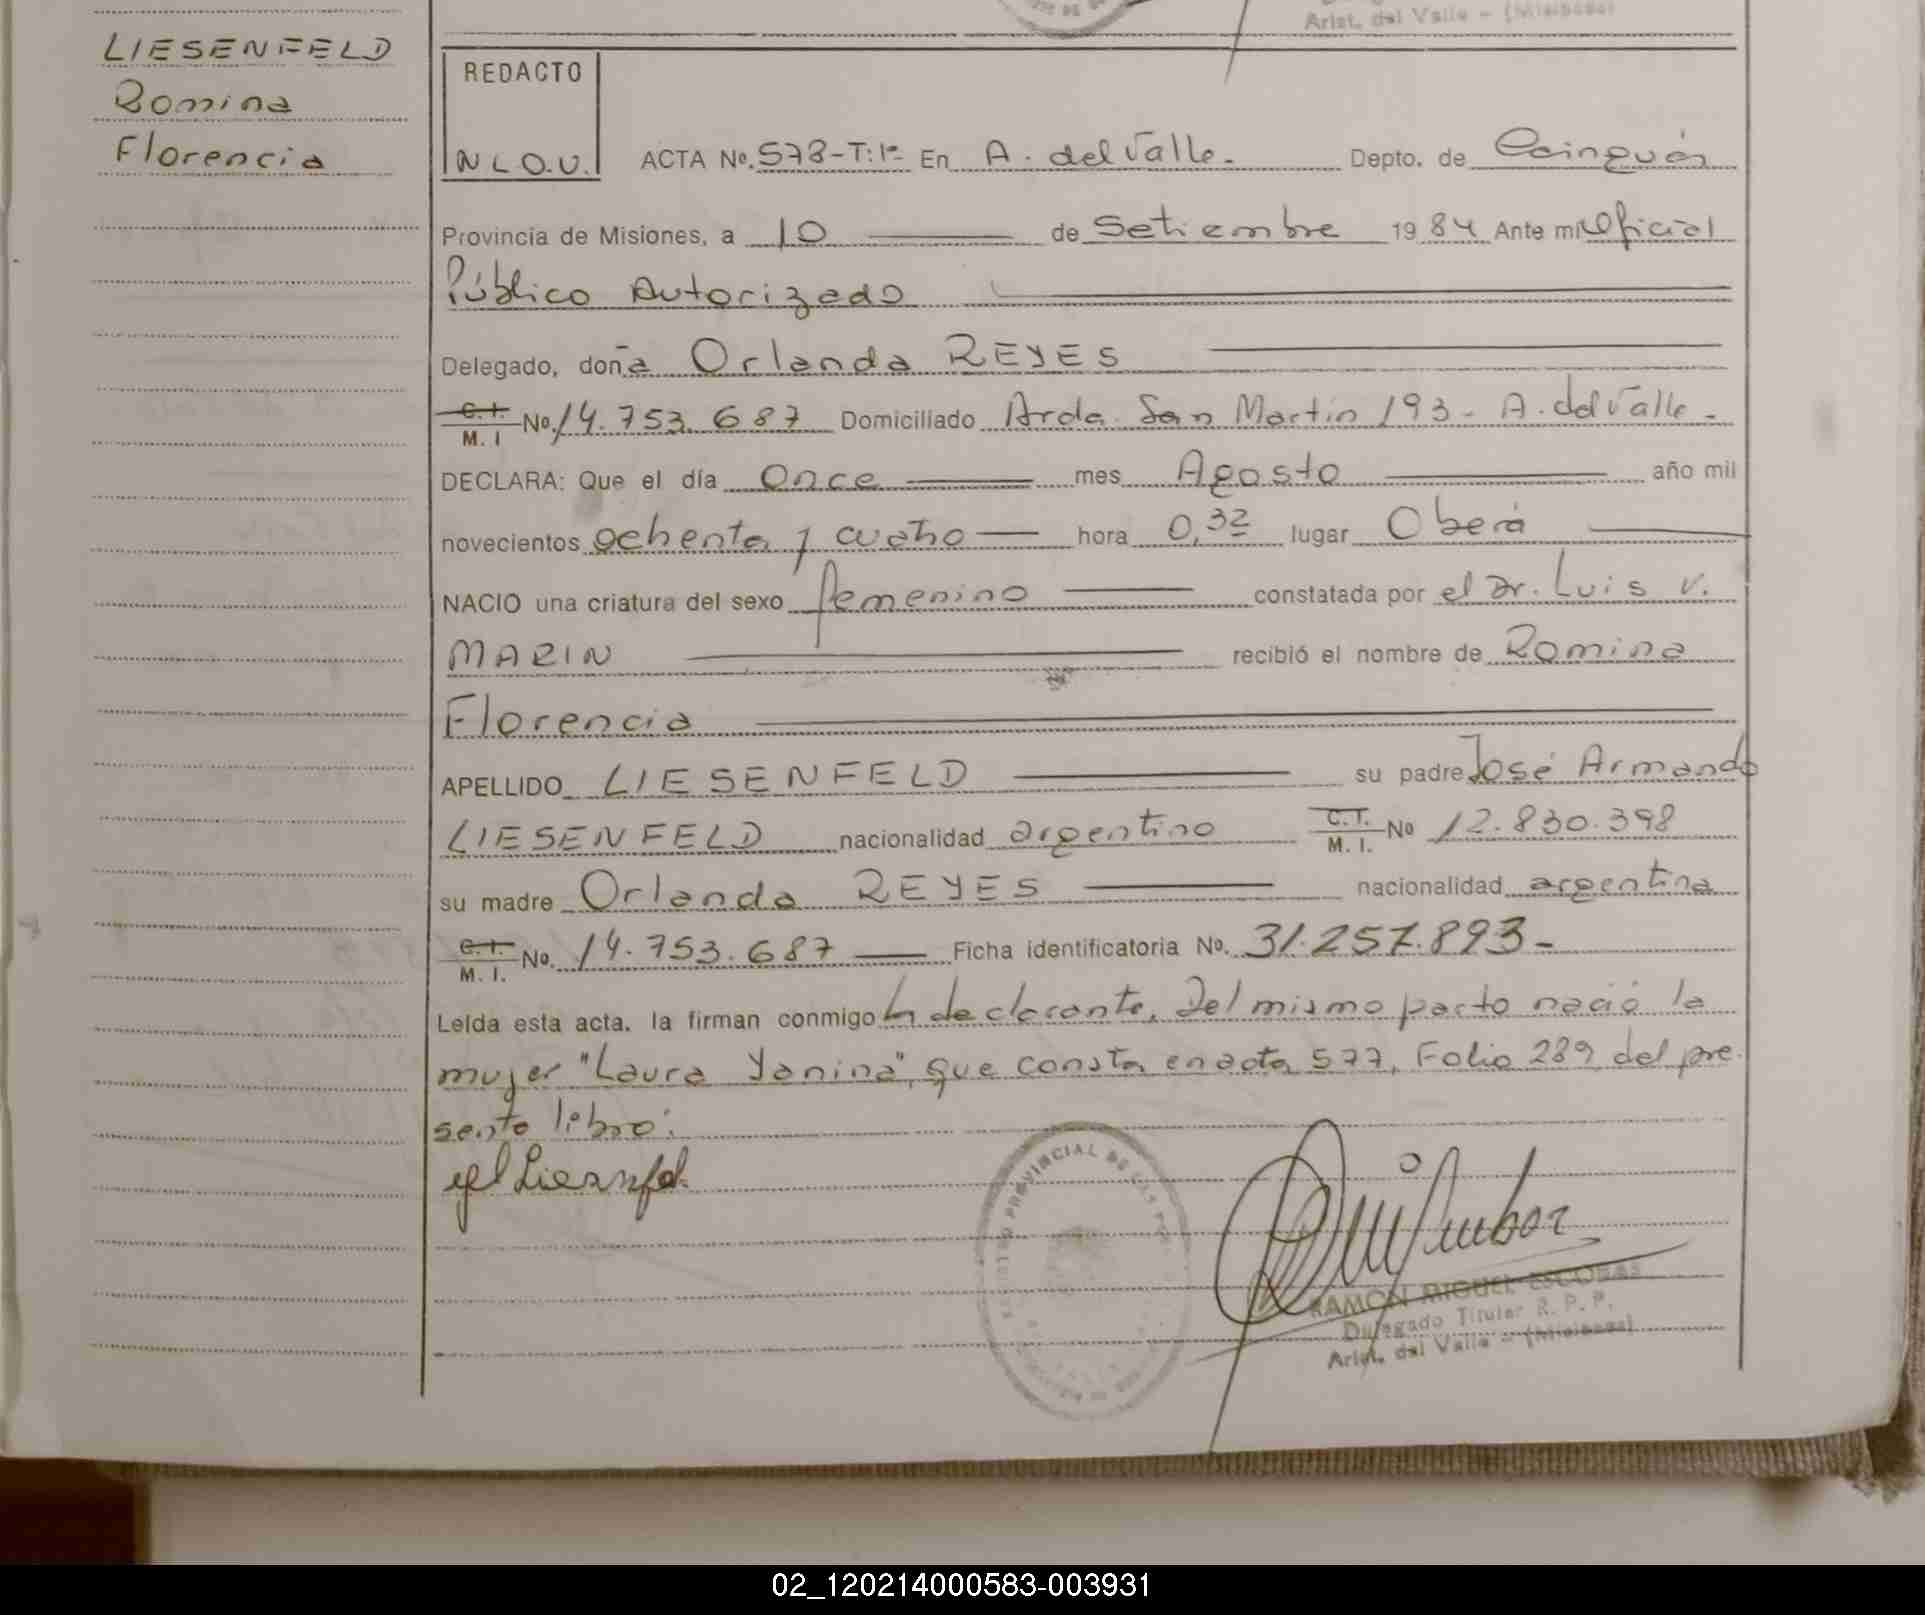 Arist. del Valle - (Misiones)
LIESENFELD
Romina
Florencia
REDACTO
N L O.U.
ACTA Nº. 578-T:1º En A. del Valle. Depto. de Cainguás
Provincia de Misiones, a 10 de Setiembre 1984 Ante mi Oficial
Público Autorizado
Delegado, doña Orlanda REYES
C.I. M. I Nº. 14.753.687 Domiciliado Avda. San Martin 193 - A. del Valle -
DECLARA: Que el día Once mes Agosto año mil
novecientos ochenta y cuatro hora 0,32 lugar Oberá
NACIO una criatura del sexo femenino constatada por el Dr. Luis V.
MARIN recibió el nombre de Romina
Florencia
APELLIDO LIESENFELD su padre José Armando
LIESENFELD nacionalidad argentino C.T. M. I. No 12.830.398
su madre Orlanda REYES nacionalidad argentina
C.I. M. I. No. 14.753.687 Ficha identificatoria Nº. 31.257.893-
Leída esta acta, la firman conmigo la declarante. Del mismo parto nació la
mujer "Laura Yanina", que consta en acta 577, Folio 289 del pre-
sente libro:
RAMÓN MIGUEL ESCOBAR
Delegado Titular R. P. P.
Arist. del Valle - (Misiones)
PROVINCIAL DE LAS
02_120214000583-003931